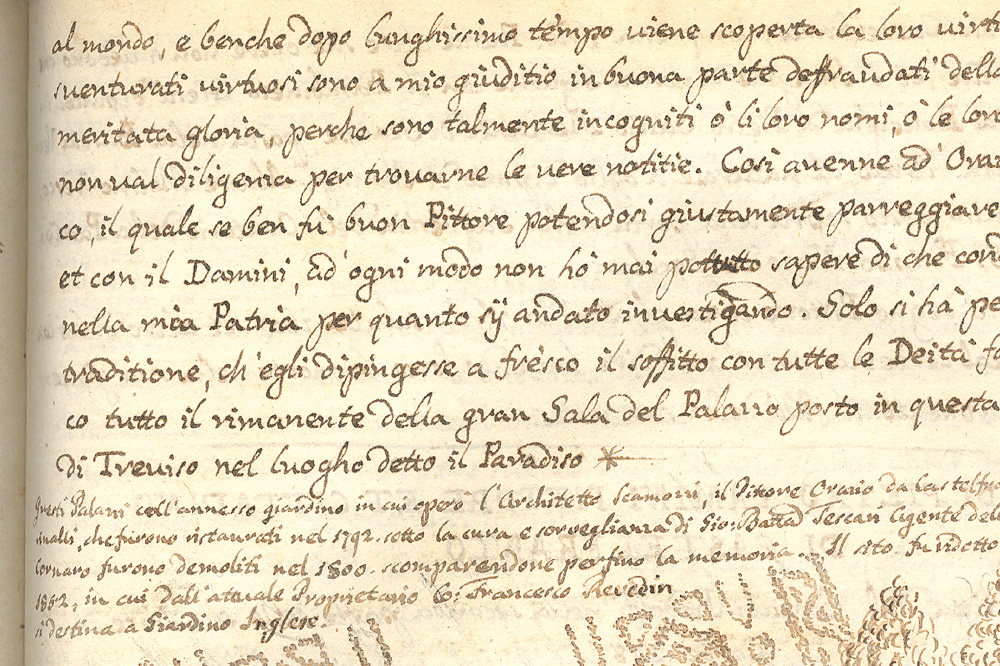 al mondo, e benche dopo lunghissimo tempo viene scoperta la loro virtu
sventurati virtuosi sono a mio giuditio in buona parte deffraudati della
meritata gloria, perche sono talmente incogniti ò li loro nomi, ò le loro
non val diligenza per trovarne le vere notitie. Cosi avenne ad Oraz
co, il quale se ben fù buon Pittore potendosi giustamente parreggiare
et con il Damini, ad ogni modo non hò mai sapere di che cond
nella mia Patria per quanto sij andato investigando. Solo si hà pe
traditione, ch'egli dipingesse a fresco il soffitto con tutte le Deità fa
co tutto il rimanente della gran Sala del Palazzo posto in questa
di Treviso nel luogho detto il Paradiso
Questi Palazzi coll'annesso giardino in cui operò l'Architetto Scamozzi, il Pittore Orazio da Castelfra
che furono ristaurati nel 1792. sotto la cura e sorveglianza di Gio: Batta Tescari Agente del
Cornaro furono demoliti nel 1800. scomparendone perfino la memoria. Il sito fu ridotto
1852, in cui dall'attuale Proprietario Co: Francesco Revedin
si destina a Giardino Inglese.